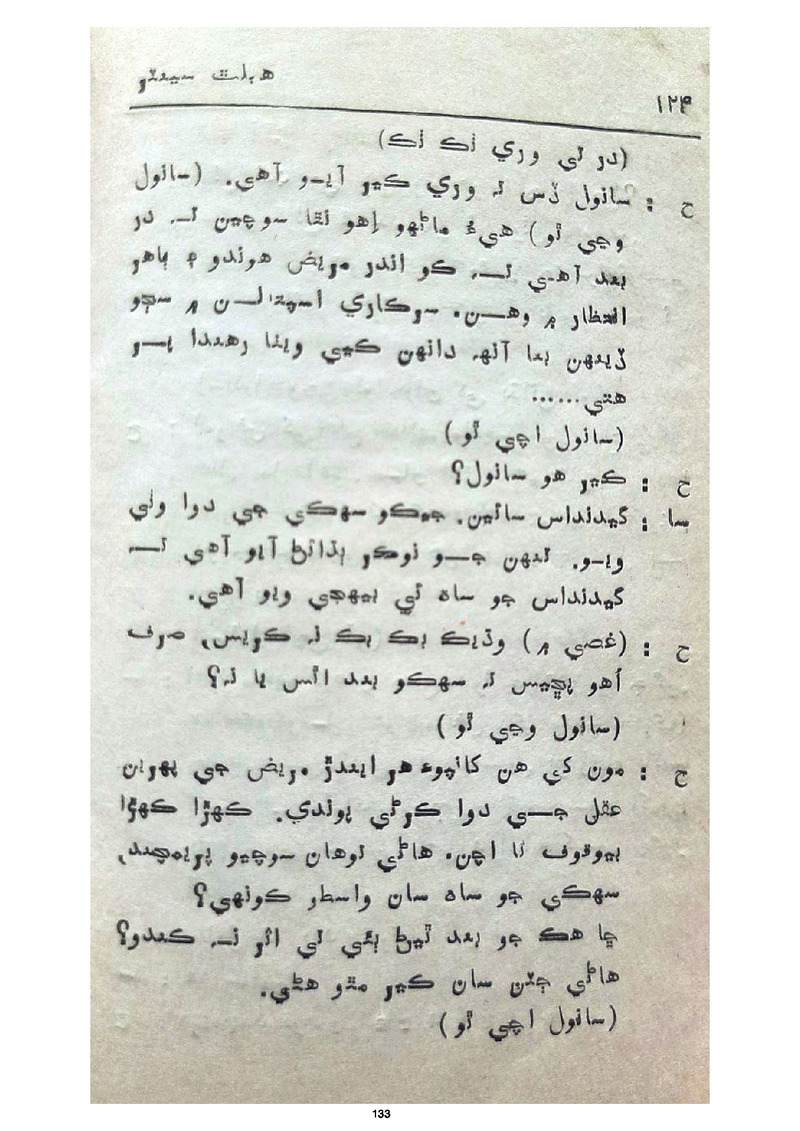 هيلٿ سينٽر
۱۲۴
(در تي وري ٺڪ ٺڪ)
ح : سانول ڏس ته وري ڪير آيو آهي. (سانول
وڃي ٿو) هيءُ ماڻهو اِهو نٿا سوچين تہ در
بند آهي تہ ڪو اندر مريض هوندو ۽ ٻاهر
انتظار ۾ وهن. سرڪاري اسپتالن ۾ سڄو
ڏينهن بنا آنهہ دانهن ڪئي ويٺا رهندا پر
هتي......
(سانول اچي ٿو)
ح : ڪير هو سانول؟
سا : گينداس سائين. جيڪو سهڪي جي دوا وٺي
ويو. تنهن جو نوڪر ٻڌائڻ آيو آهي تہ
گينداس جو ساهه ئي بيهجي ويو آهي.
ح : (غصي ۾) وڌيڪ بڪ بڪ نہ ڪريس، صرف
اُهو پڇيس تہ سهڪو بند اٿس يا نہ؟
(سانول وڃي ٿو)
ح : مون کي هن کانپوءِ هر ايندڙ مريض جي پهرين
عقل جي دوا ڪرڻي پوندي. ڪهڙا ڪهڙا
بيوقوف ٿا اچن. هاڻي توهان سوچيو پريمچند،
سهڪي جو ساهه سان واسطو ڪونهي؟
ڇا هڪ جو بند ٿيڻ ٻئي تي اثر نہ ڪندو؟
هاڻي جٽن سان ڪير مٿو هڻي.
(سانول اچي ٿو)
133